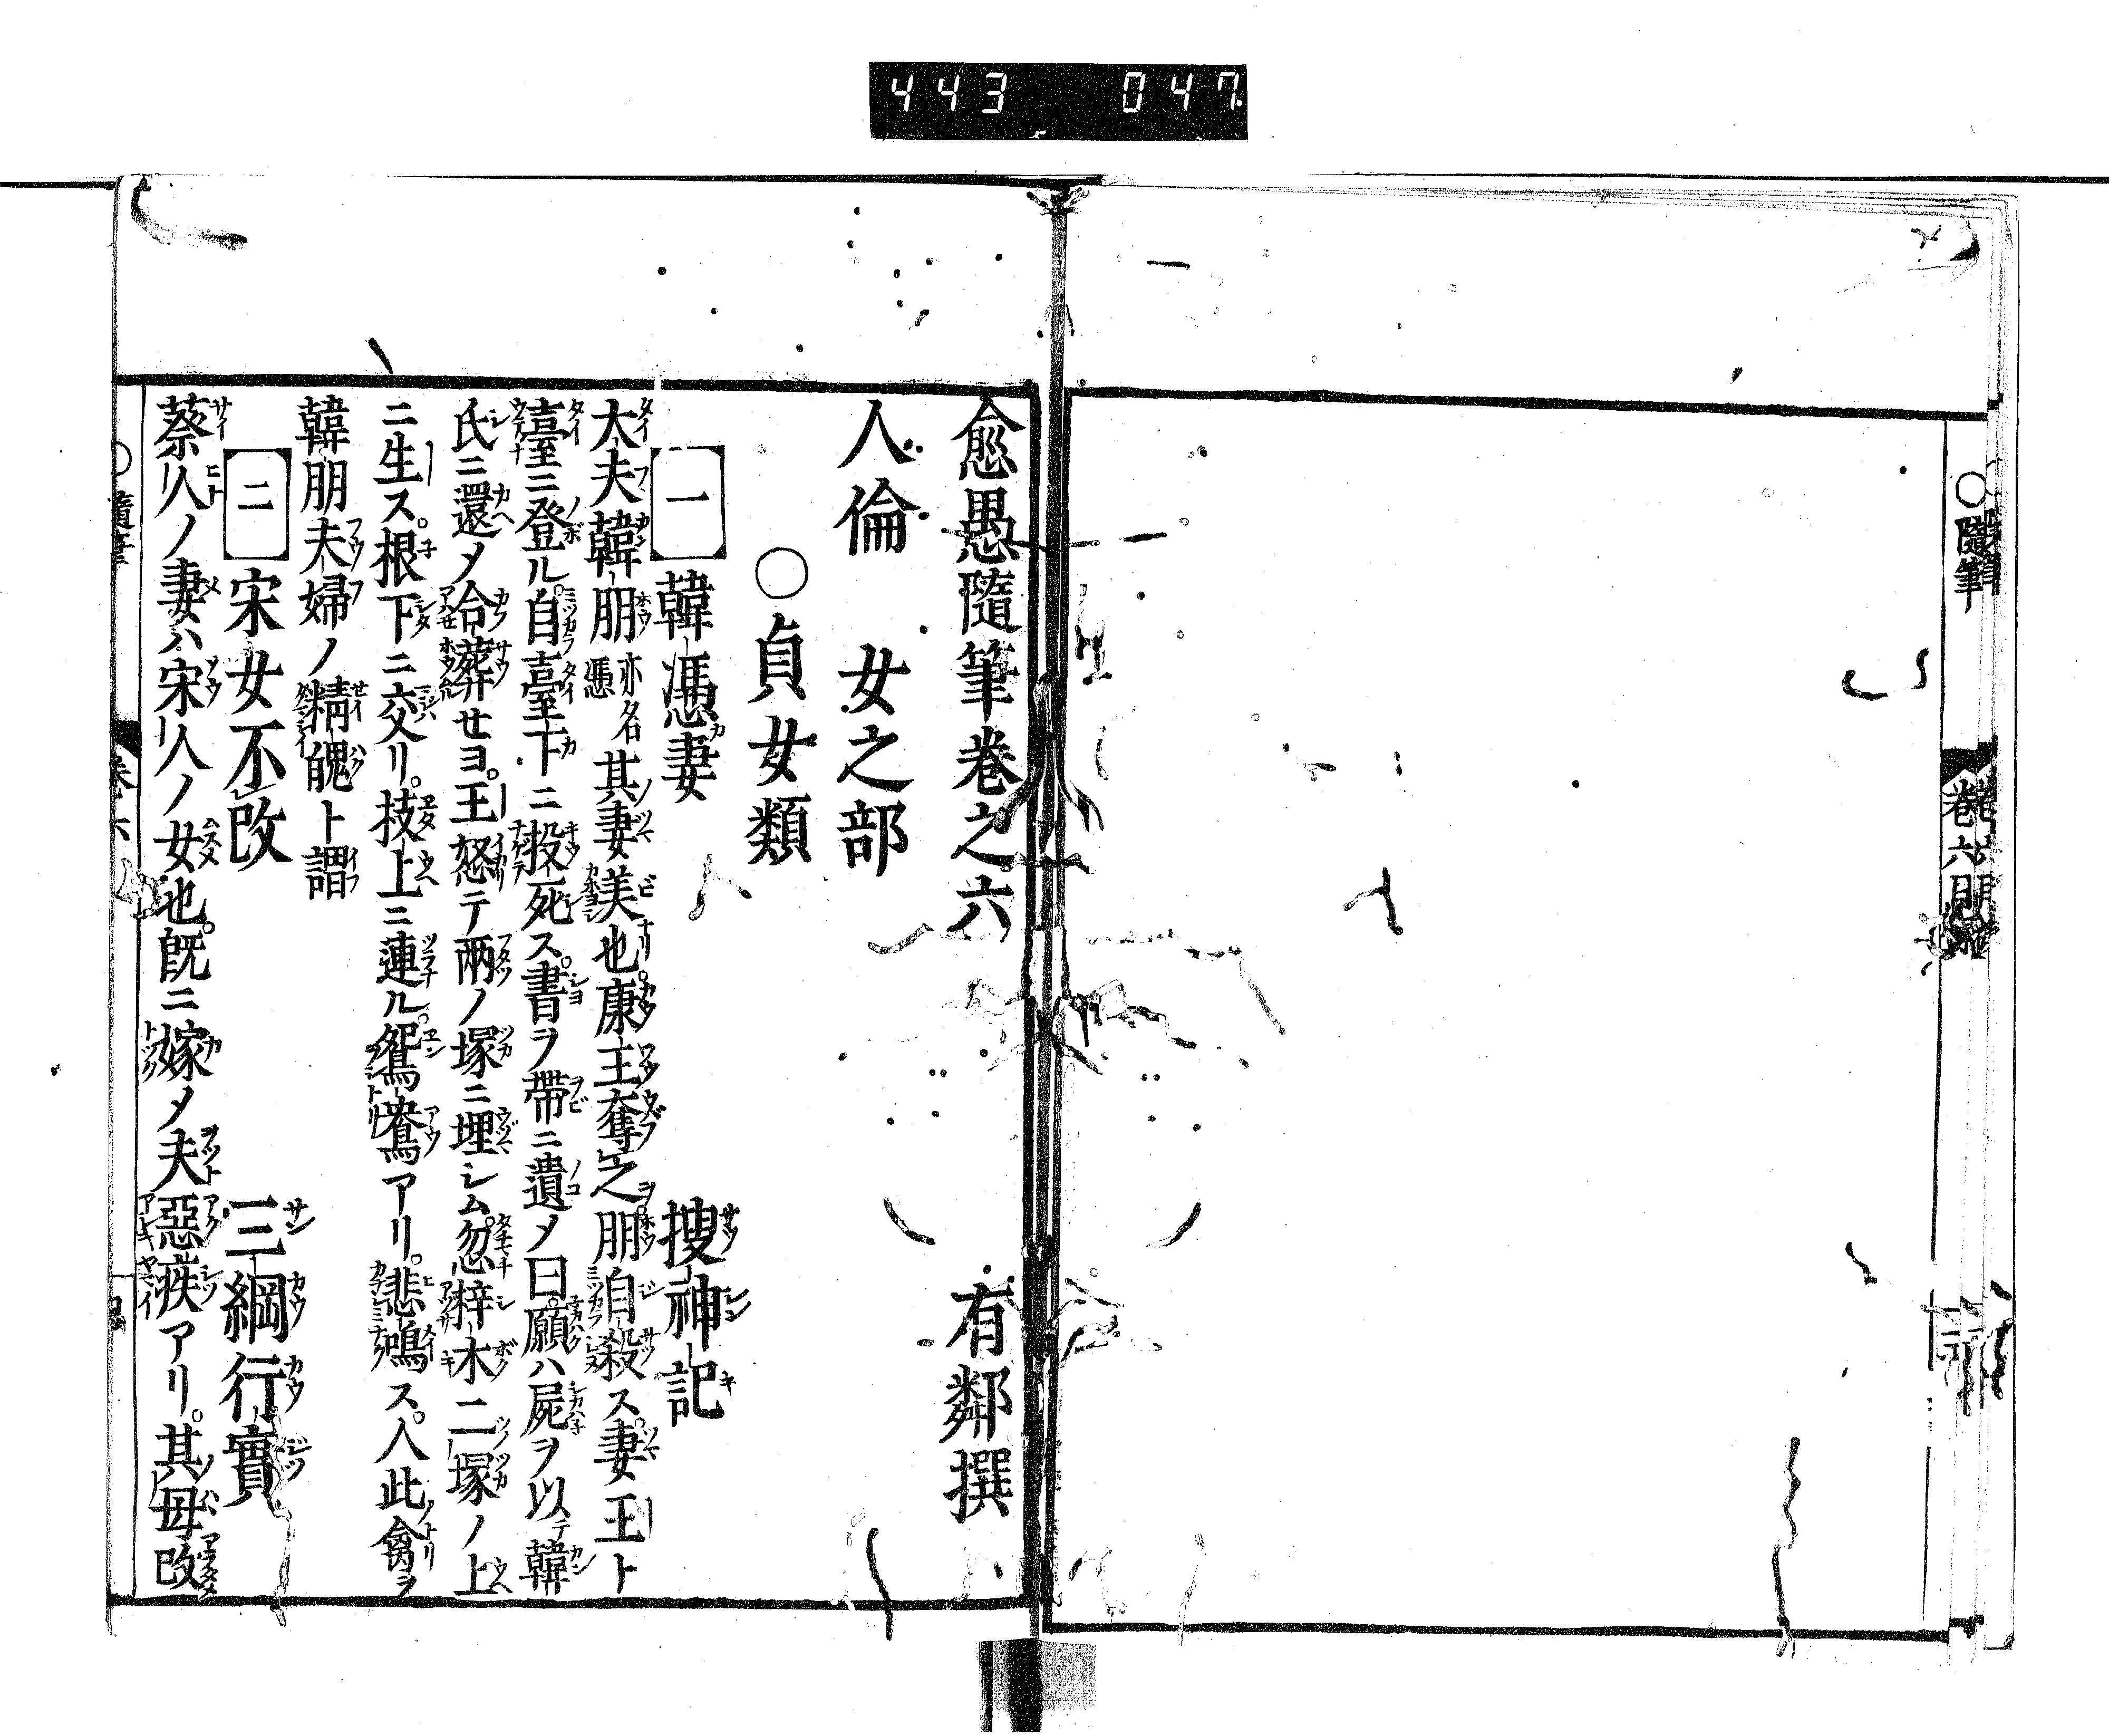 443 047
○隨筆 卷六
愈愚隨筆卷之六 有鄰撰
人倫 女之部
○貞女類
一 韓憑妻 搜神記
大夫韓朋亦名憑其妻美也康王奪之朋自殺ス妻王ト
臺ニ登ル自臺下ニ投死ス書ヲ帶ニ遺メ曰願ハ屍ヲ以テ韓
氏ニ還メ合葬せヨ王怒テ兩ノ塚ニ埋シム忽梓木二塚ノ上
ニ生ス根下ニ交リ技上ニ連ル鴛鴦アリ悲鳴ス人此禽ヲ
韓朋夫婦ノ精魄ト謂
二 宋女不改 三綱行實
蔡人ノ妻ハ宋人ノ女也既ニ嫁メ夫惡疾アリ其母改
○隨筆 卷六 一